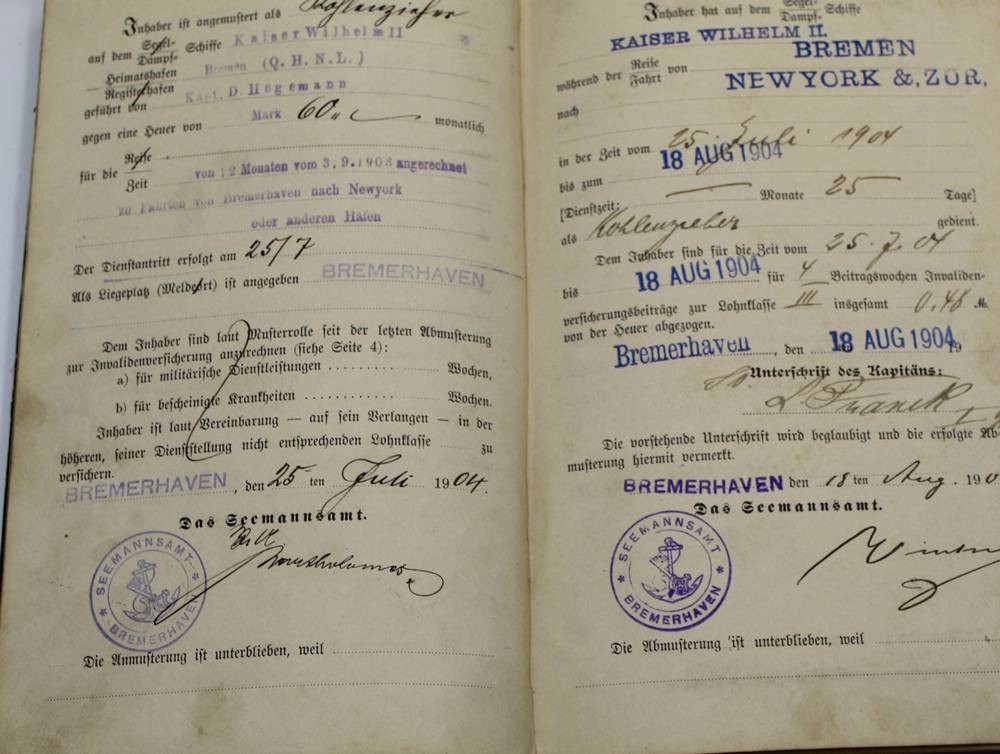 Inhaber ist angemustert als Kohlenzieher
auf dem Segel- Dampf- Schiffe Kaiser Wilhelm II
Heimatshafen
Registerhafen Bremen (Q.H.N.L.)
geführt von Kapt. D. Högemann
gegen eine Heuer von Mark 60 monatlich
für die Reise Zeit von 12 Monaten vom 3.9.1903 angerechnet
zu Fahrten von Bremerhaven nach Newyork
oder anderen Häfen
Der Dienstantritt erfolgt am 25/7
Als Liegeplatz (Meldeort) ist angegeben BREMERHAVEN
Dem Inhaber sind laut Musterrolle seit der letzten Abmusterung
zur Invalidenversicherung anzurechnen (siehe Seite 4):
a) für militärische Dienstleistungen ......... Wochen,
b) für bescheinigte Krankheiten ............ Wochen.
Inhaber ist laut Vereinbarung — auf sein Verlangen — in der
höheren, seiner Dienststellung nicht entsprechenden Lohnklasse zu
versichern.
BREMERHAVEN, den 25 ten Juli 1904.
Das Seemannsamt.
SEEMANNSAMT
BREMERHAVEN
Die Anmusterung ist unterblieben, weil
Inhaber hat auf dem Segel- Dampf- Schiffe
KAISER WILHELM II.
während der Reise Fahrt von BREMEN
NEWYORK &, ZÜR,
nach
in der Zeit vom 25. Juli 1904
bis zum 18 AUG 1904
[Dienstzeit: — Monate 25 Tage]
als Kohlenzieher gedient.
Dem Inhaber sind für die Zeit vom 25.7.04
bis 18 AUG 1904 für 4 Beitragswochen Invaliden-
versicherungsbeiträge zur Lohnklasse III insgesamt 0.48 M.
von der Heuer abgezogen.
Bremerhaven, den 18 AUG 1904 19
Unterschrift des Kapitäns:
Die vorstehende Unterschrift wird beglaubigt und die erfolgte Ab-
musterung hiermit vermerkt.
BREMERHAVEN den 18 ten Aug. 190
Das Seemannsamt.
SEEMANNSAMT
BREMERHAVEN
Die Abmusterung ist unterblieben, weil